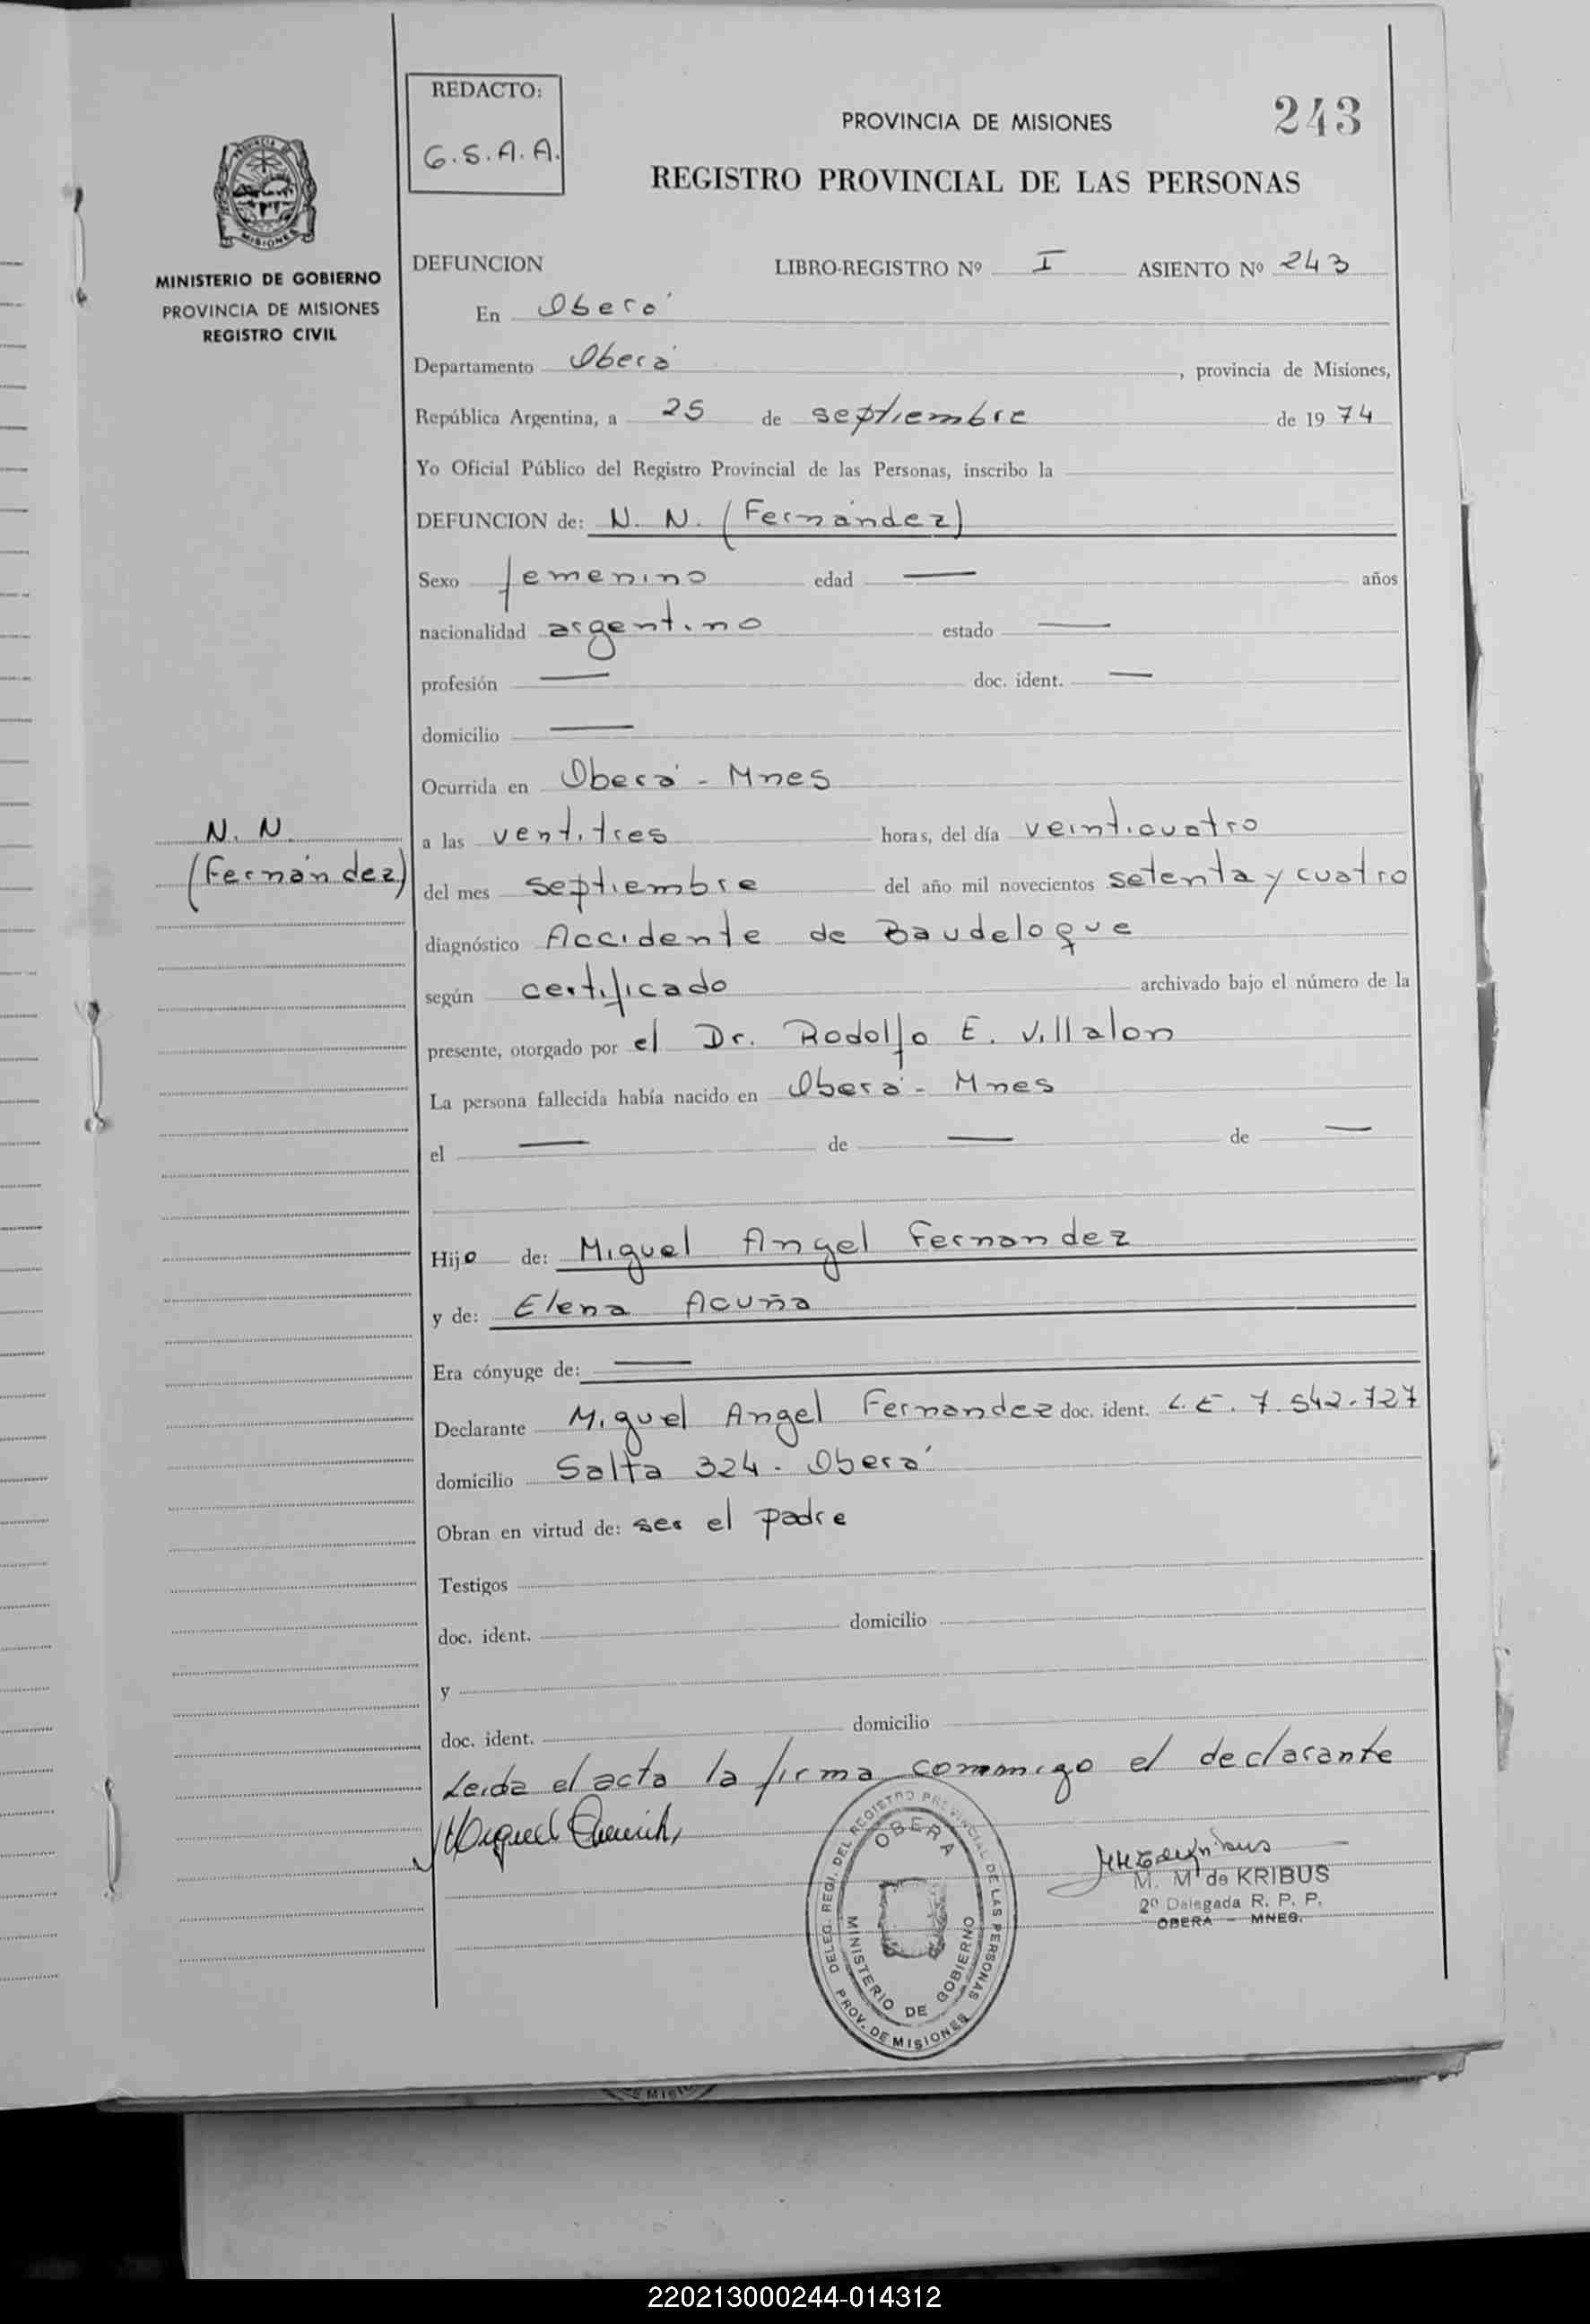 REDACTO:
G.S.A.A.
PROVINCIA DE MISIONES
243
REGISTRO PROVINCIAL DE LAS PERSONAS
MISIONES
MINISTERIO DE GOBIERNO
PROVINCIA DE MISIONES
REGISTRO CIVIL
DEFUNCION LIBRO-REGISTRO Nº I ASIENTO Nº 243
En Oberá
Departamento Oberá, provincia de Misiones,
República Argentina, a 25 de septiembre de 1974
Yo Oficial Público del Registro Provincial de las Personas, inscribo la
DEFUNCION de: N. N. (Fernández)
Sexo femenino edad — años
nacionalidad argentino estado —
profesión — doc. ident. —
domicilio —
Ocurrida en Oberá - Mnes
N. N.
(Fernández)
a las ventitres horas, del día veinticuatro
del mes septiembre del año mil novecientos setenta y cuatro
diagnóstico Accidente de Baudeloque
según certificado archivado bajo el número de la
presente, otorgado por el Dr. Rodolfo E. Villalon
La persona fallecida había nacido en Oberá - Mnes
el — de — de —
Hijo de: Miguel Angel Fernandez
y de: Elena Acuña
Era cónyuge de: —
Declarante Miguel Angel Fernandez doc. ident. L.E. 7.542.727
domicilio Salta 324 - Oberá
Obran en virtud de: ser el padre
Testigos
doc. ident. domicilio
y
doc. ident. domicilio
Leida el acta la firma conmigo el declarante
Miguel
DELEG. REGI. DEL REGISTRO PROVINCIAL DE LAS PERSONAS
OBERA
MINISTERIO DE GOBIERNO
PROV. DE MISIONES
M. M de KRIBUS
2º Delegada R. P. P.
OBERA - MNES.
220213000244-014312